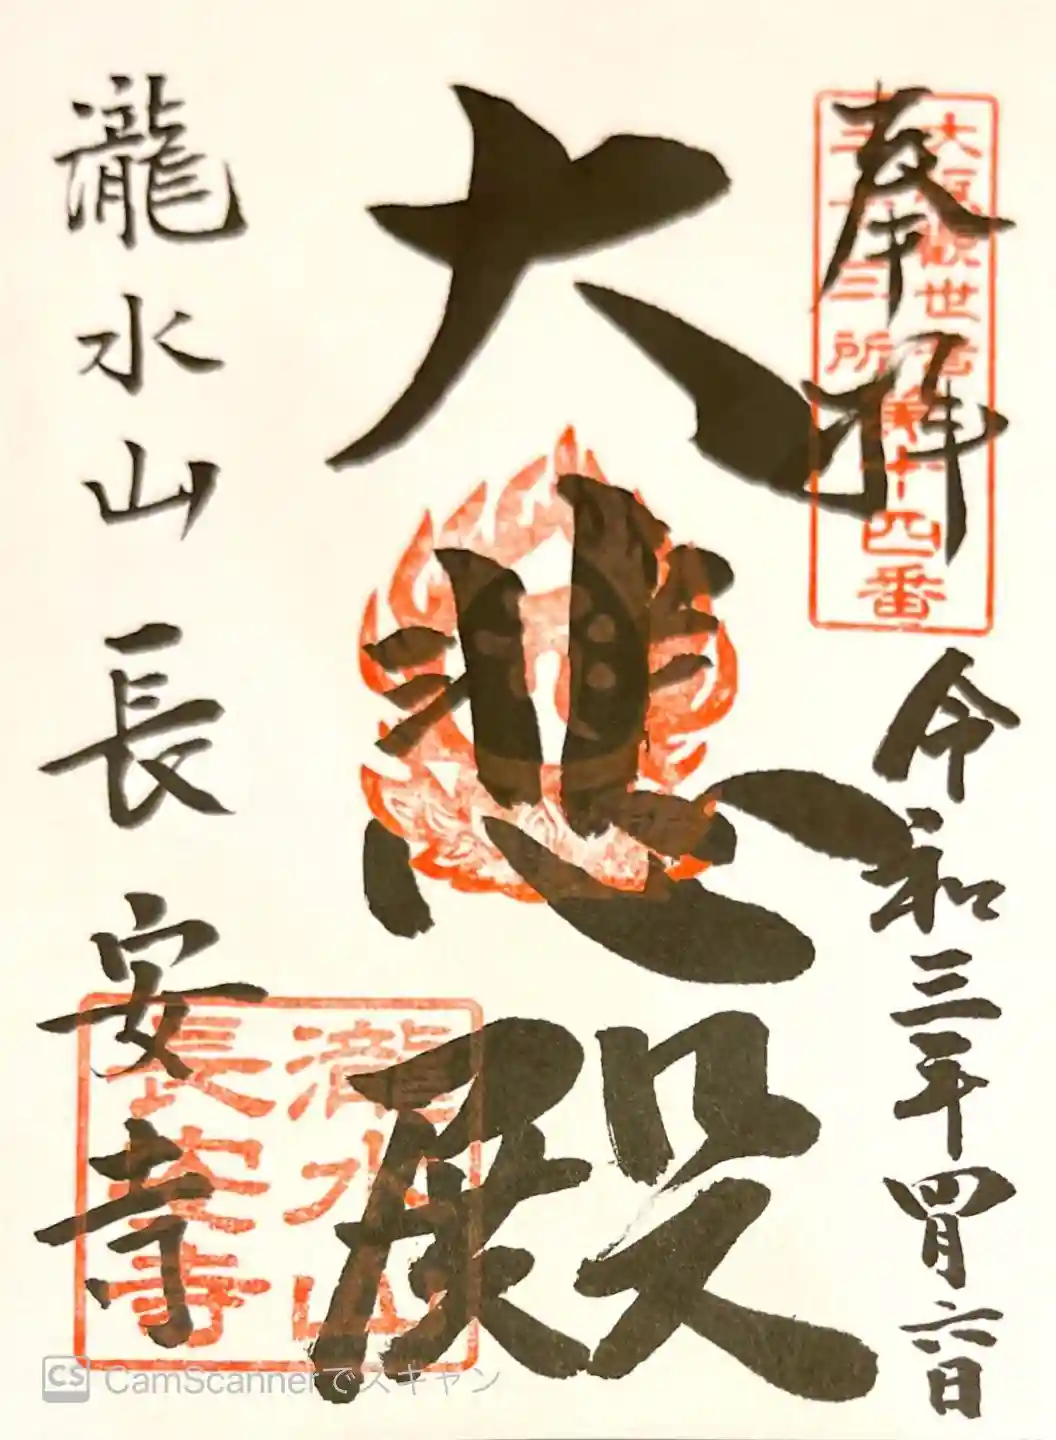 奉拝
大宮観世音
三十三所
第十四番
令和三年四月六日
大悲殿
瀧水山長安寺
瀧水山
長安寺
CS CamScannerでスキャン